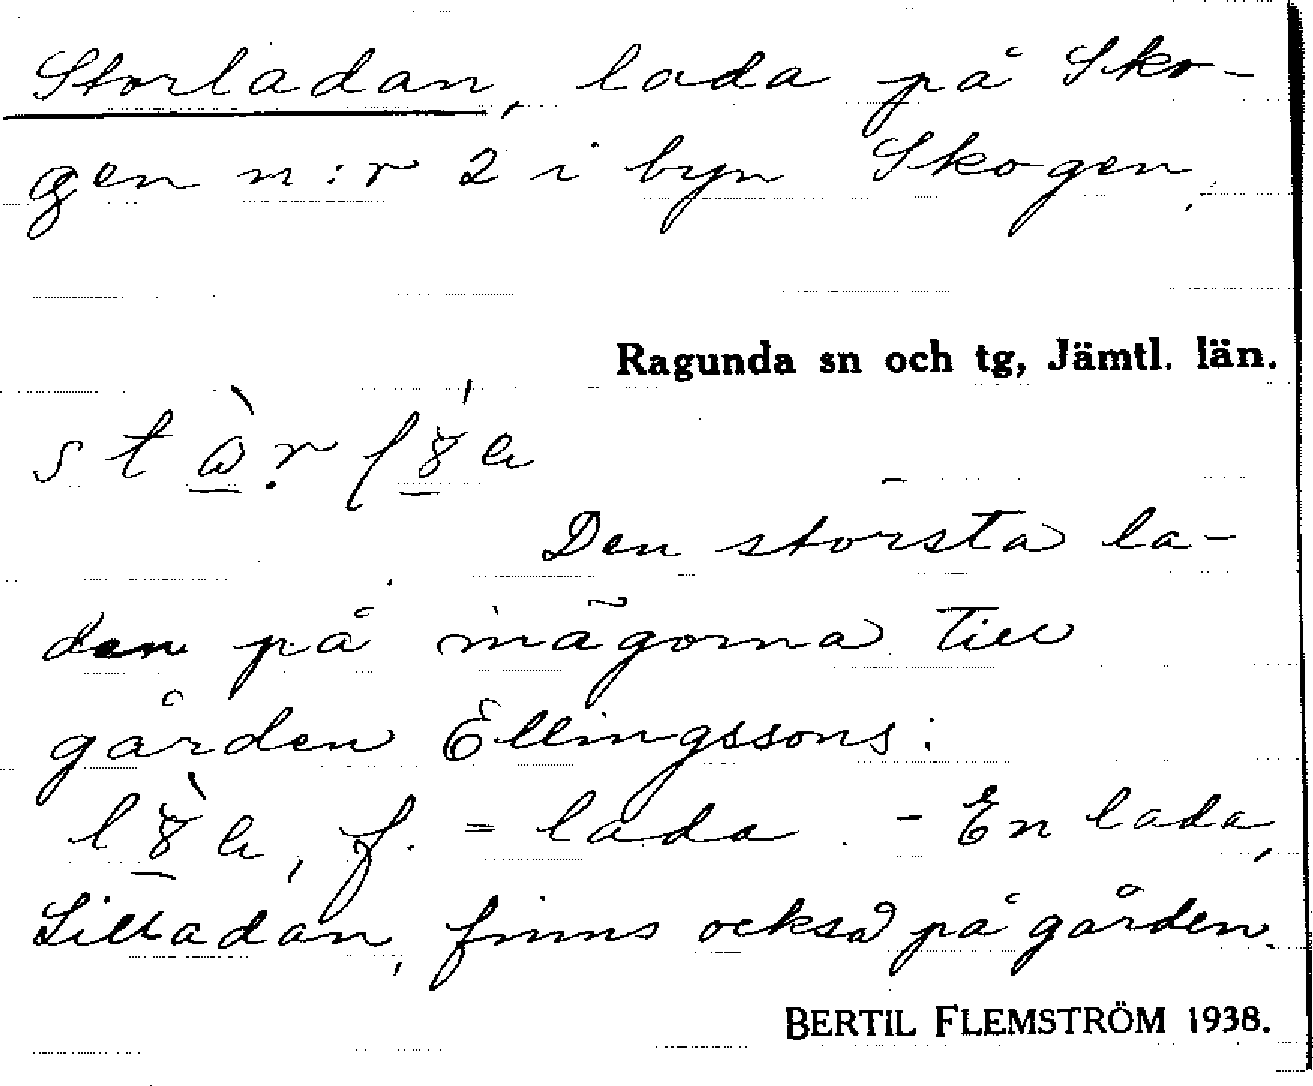 Storladan, lada på Sko-
gen n:r 2 i byn Skogen.
Ragunda sn och tg, Jämtl. län.
Den största la-
dan på inägorna till
gården Ellingssons.
f. = lada. - En lada,
Lilladan, finns också på gården.
BERTIL FLEMSTRÖM 1938.